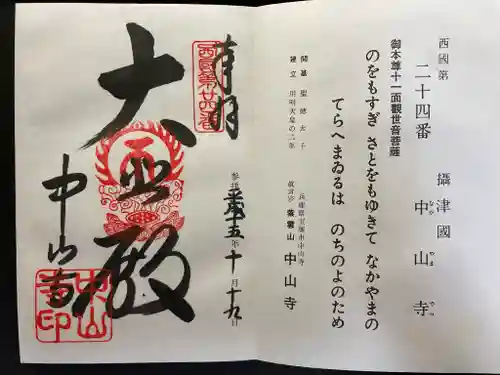 西國第
二十四番 攝津國 中山寺
なか やま でら
御本尊十一面觀世音菩薩
のをもすぎ さとをもゆきて なかやまの
てらへまゐるは のちのよのため
開基 聖徳太子
建立 用明天皇の二年
兵庫県宝塚市中山寺
真言宗 紫雲山 中山寺
奉拝
西国第廿四番
大悲殿
中山寺
中山寺印
参拝 平成十五年十月十九日